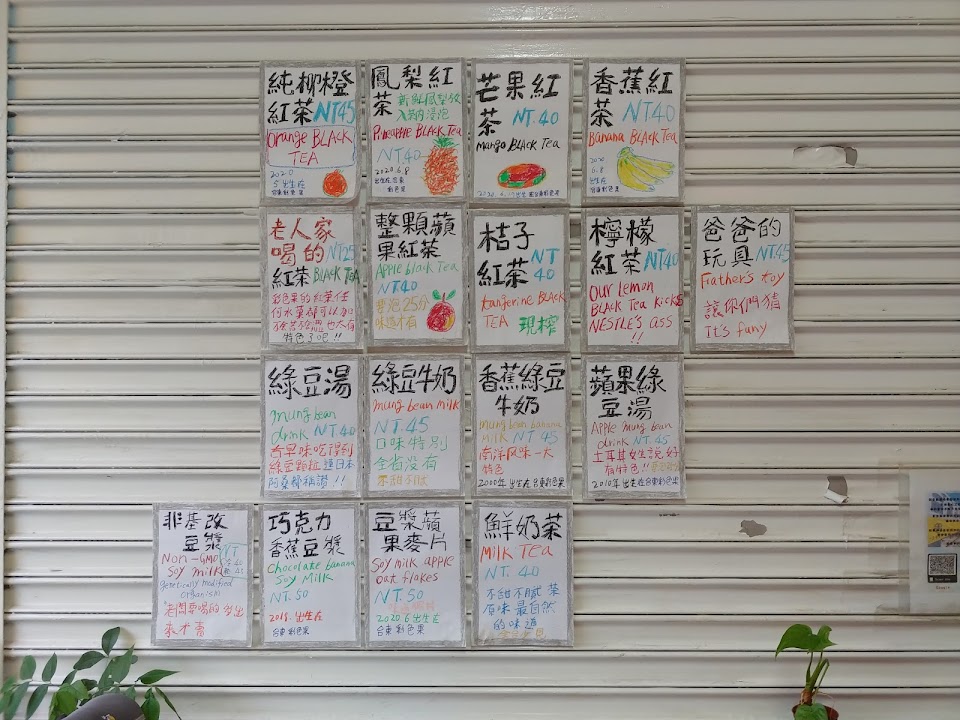 純柳橙
紅茶 NT45
Orange BLACK
TEA
2020
5 出生在
台東彩色果
鳳梨紅
茶 新鮮鳳梨放
入茶內浸泡
Pineapple BLACK Tea
NT.40
2020.6.8
出生在台東
彩色果
芒果紅
茶 NT.40
Mango BLACK Tea
2020.6.17出生
香蕉紅
茶 NT.40
Banana BLACK Tea
2020
6.8
出生在
台東彩色果
老人家
喝的 NT25
紅茶 BLACK TEA
彩色果的紅茶任
何水菓都可以加
特色了吧!!
整顆蘋
果紅茶
Apple black Tea
NT.40
要泡25分
味道才有
桔子 NT
紅茶 40
tangerine BLACK
TEA 現榨
檸檬
紅茶 NT40
Our Lemon
BLACK Tea Kicks
NESTLE'S ass
!!
爸爸的
玩具 NT.45
Frather's toy
讓你們猜
It's funy
綠豆湯
mung bean
drink NT.40
古早味吃得到
綠豆顆粒 連日本
阿桑都稱讚!!
綠豆牛奶
mung bean milk
NT.45
口味特別
全省沒有
香蕉綠豆
牛奶
mung bean banana
MILK NT 45
南洋風味一大
特色
2000年出生在台東彩色果
蘋果綠
豆湯
Apple mung bean
drink NT.45
土耳其女生說好
有特色!!
2010年出生在台東彩色果
非基改
豆漿
Non-GMO
Soy milk
genetically modified
organism
巧克力
香蕉豆漿
Chocolate banana
Soy Milk
NT.50
2018.出生在
台東彩色果
豆漿蘋
果麥片
Soy milk apple
oat flakes
NT.50
2020.6出生在
台東彩色果
鮮奶茶
Milk Tea
NT.40
不甜不膩 茶
原味最自然
的味道